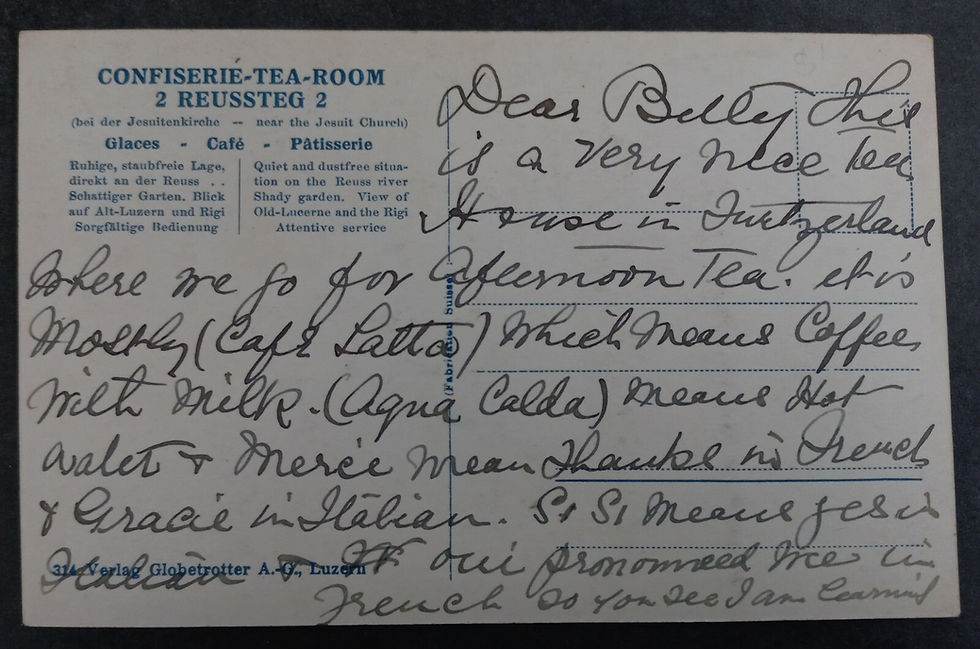 CONFISERIE-TEA-ROOM
2 REUSSTEG 2
(bei der Jesuitenkirche -- near the Jesuit Church)
Glaces - Café - Pâtisserie
Ruhige, staubfreie Lage,
direkt an der Reuss . .
Schattiger Garten. Blick
auf Alt-Luzern und Rigi
Sorgfältige Bedienung
Quiet and dustfree situa-
tion on the Reuss river
Shady garden. View of
Old-Lucerne and the Rigi
Attentive service
(Fabrication Suisse)
314 Verlag Globetrotter A.-G., Luzern
Dear Billy This
is a Very nice Tea
House in Switzerland
Where we go for Afternoon Tea. it is
Mostly (Café Latta) Which Means Coffee
With Milk. (Aqua Calda) Means Hot
water & Mercie Mean Thanks in French
& Gracie in Italian. Si Si Means yes in
Italian & oui pronounced in
French so you see I am learning
$1